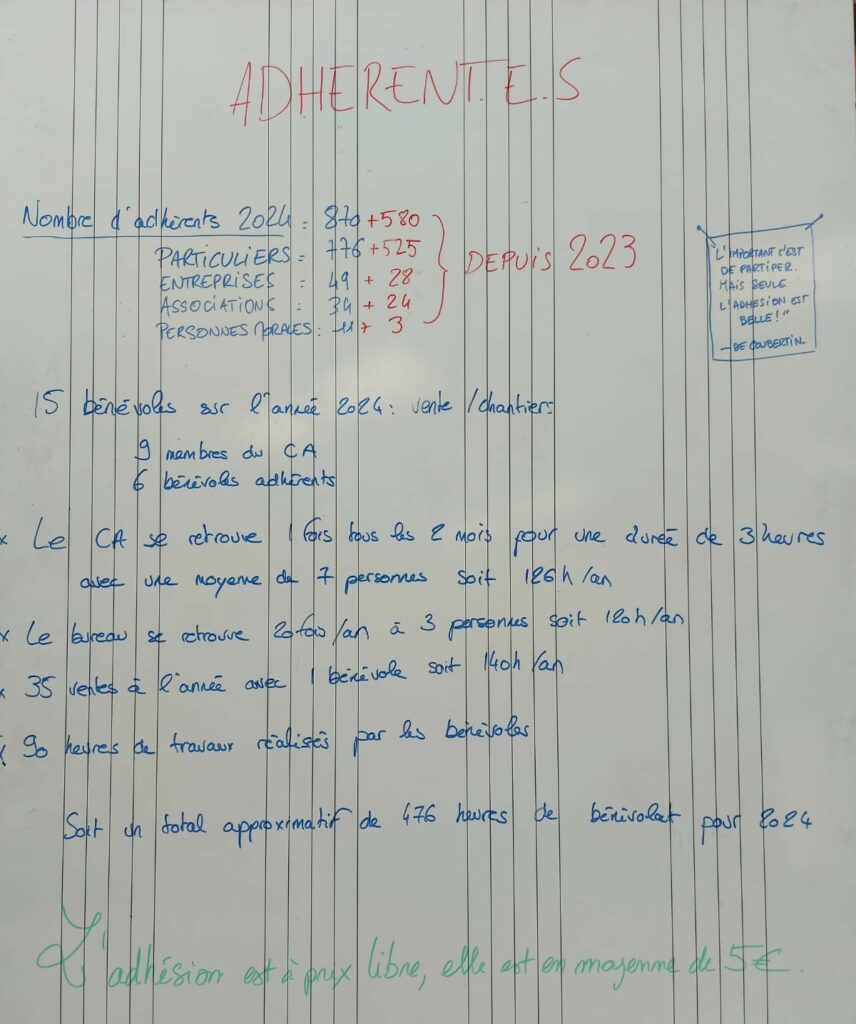 ADHERENT.E.S
Nombre d'adhérents 2024 = 870 +580
PARTICULIERS = 776 +525
ENTREPRISES : 49 + 28
ASSOCIATIONS : 34 + 24
PERSONNES MORALES : 11 + 3
DEPUIS 2023
"L'IMPORTANT C'EST
DE PARTIPER.
MAIS SEULE
L'ADHESION EST
BELLE!"
— DE COUBERTIN
15 bénévoles sur l'année 2024 : vente / chantiers
9 membres du CA
6 bénévoles adhérents
x Le CA se retrouve 1 fois tous les 2 mois pour une durée de 3 heures
avec une moyenne de 7 personnes soit 126 h /an
x Le bureau se retrouve 20 fois /an à 3 personnes soit 120 h /an
x 35 ventes à l'année avec 1 bénévole soit 140 h /an
x 90 heures de travaux réalisés par les bénévoles
Soit un total approximatif de 476 heures de bénévolat pour 2024
L'adhésion est à prix libre, elle est en moyenne de 5 €.